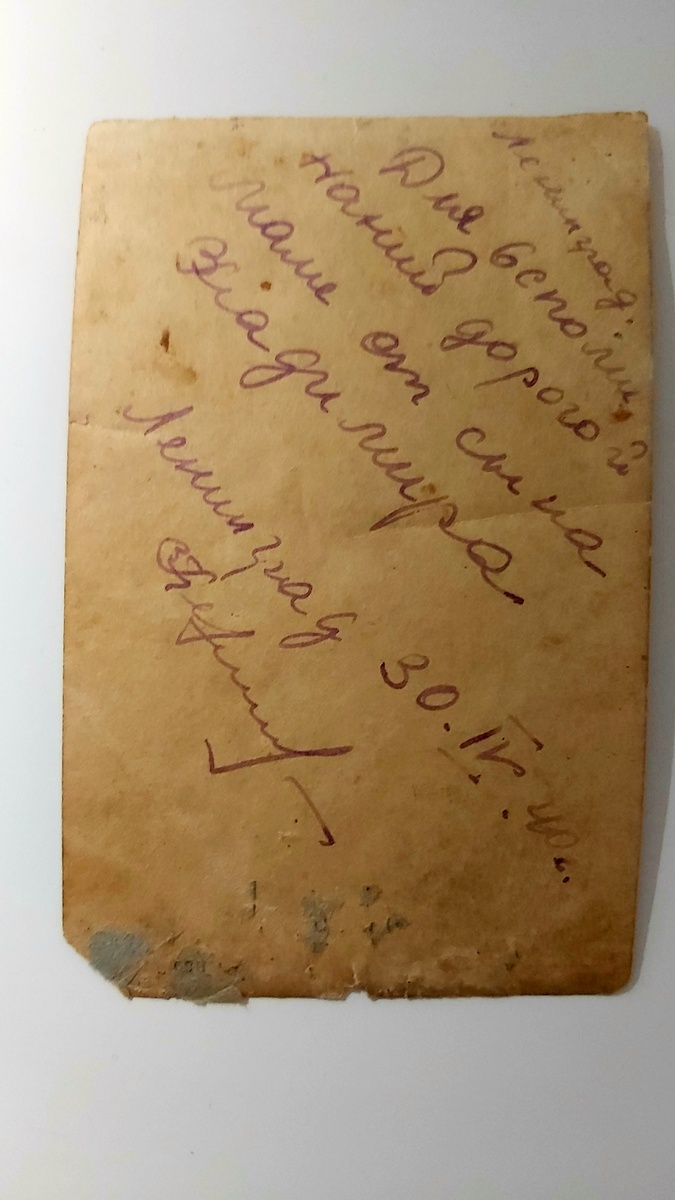 Ленинград.
Для вспоми
наний дорогой
маме от сына
Владимира
Ленинград
30.IV.40г.